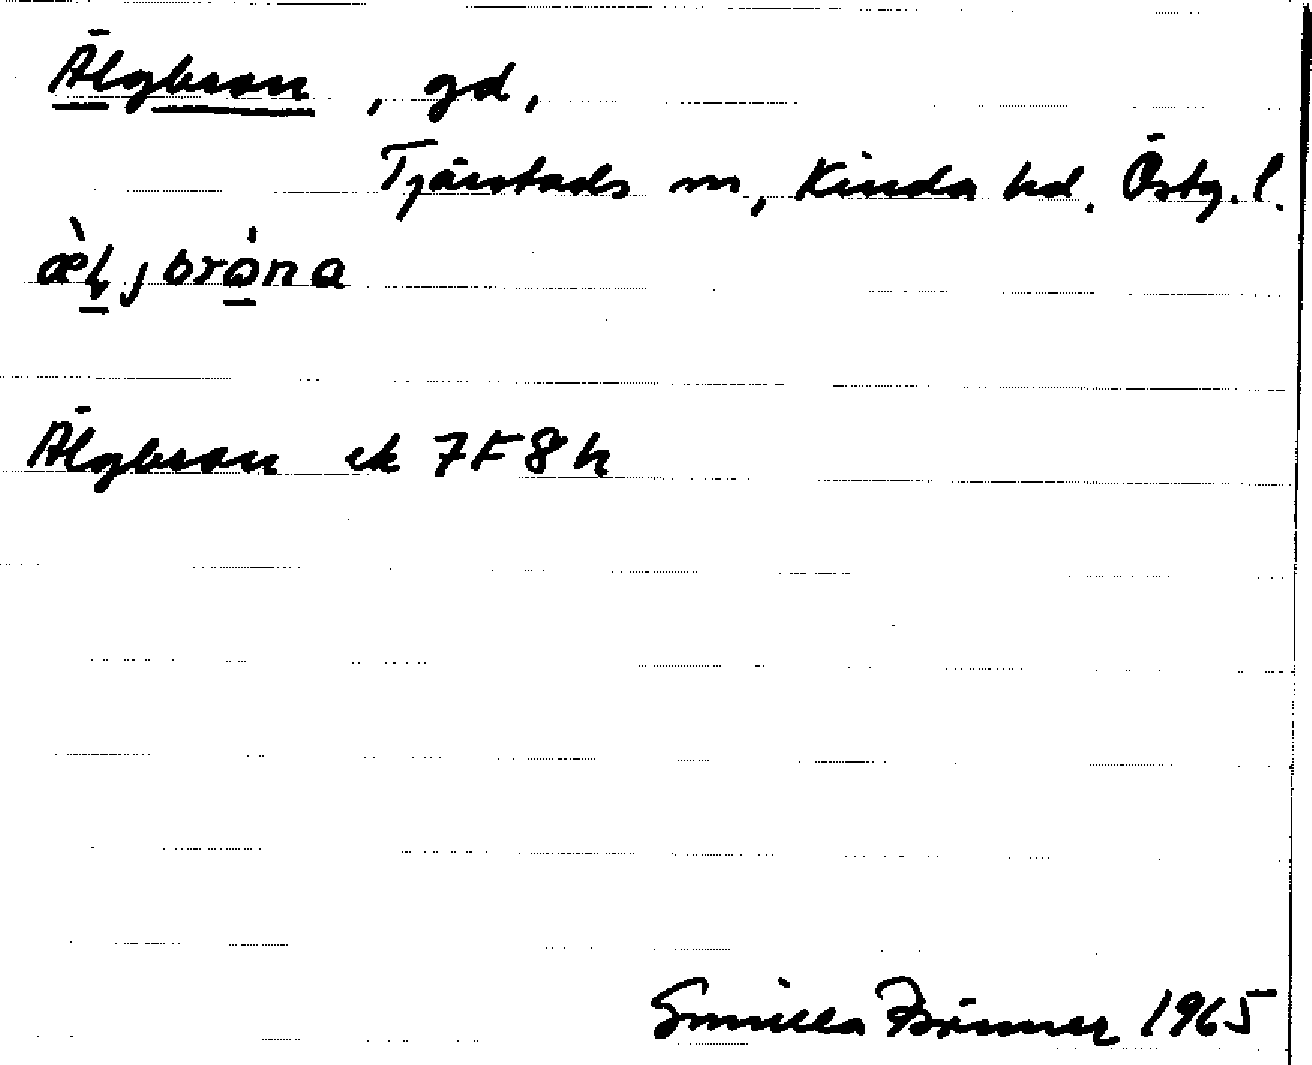 Älgbron, gd,
Tjärstads sn, Kinda hd. Östg. l.
æ̀ljbrόna
Älgbron ek 7F8h
Gunilla 1965